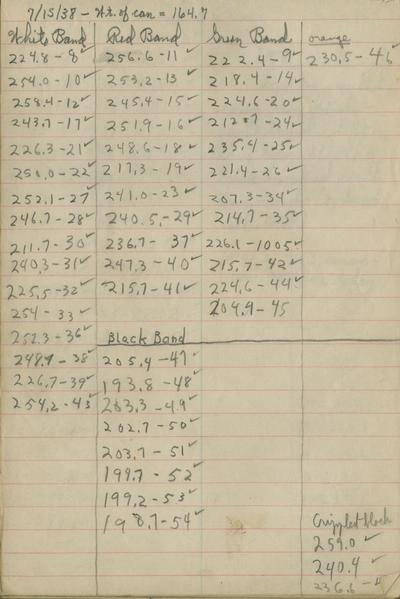 7/15/38 - Wt. of can = 164.7
White Band
224.8 - 8 ✓
254.0 - 10 ✓
258.4 - 12 ✓
243.7 - 17 ✓
226.3 - 21 ✓
250.0 - 22 ✓
252.1 - 27 ✓
246.7 - 28 ✓
211.7 - 30 ✓
240.3 - 31 ✓
225.5 - 32 ✓
254 - 33 ✓
252.3 - 36 ✓
248.9 - 38 ✓
226.7 - 39 ✓
254.2 - 43 ✓
Red Band
256.6 - 11 ✓
253.2 - 13 ✓
245.4 - 15 ✓
251.9 - 16 ✓
248.6 - 18 ✓
217.3 - 19 ✓
241.0 - 23 ✓
240.5 - 29 ✓
236.7 - 37 ✓
247.3 - 40 ✓
215.7 - 41 ✓
Black Band
205.4 - 47 ✓
193.8 - 48 ✓
203.3 - 49 ✓
202.7 - 50 ✓
203.7 - 51 ✓
199.7 - 52 ✓
199.2 - 53 ✓
198.7 - 54 ✓
Green Band
222.4 - 9 ✓
218.4 - 14 ✓
224.6 - 20 ✓
212.7 - 24 ✓
235.4 - 25 ✓
221.4 - 26 ✓
207.3 - 34 ✓
214.7 - 35 ✓
226.1 - 1005 ✓
215.7 - 42 ✓
224.6 - 44 ✓
204.9 - 45
orange
230.5 - 46 ✓
259.0 ✓
240.4 ✓
236.6